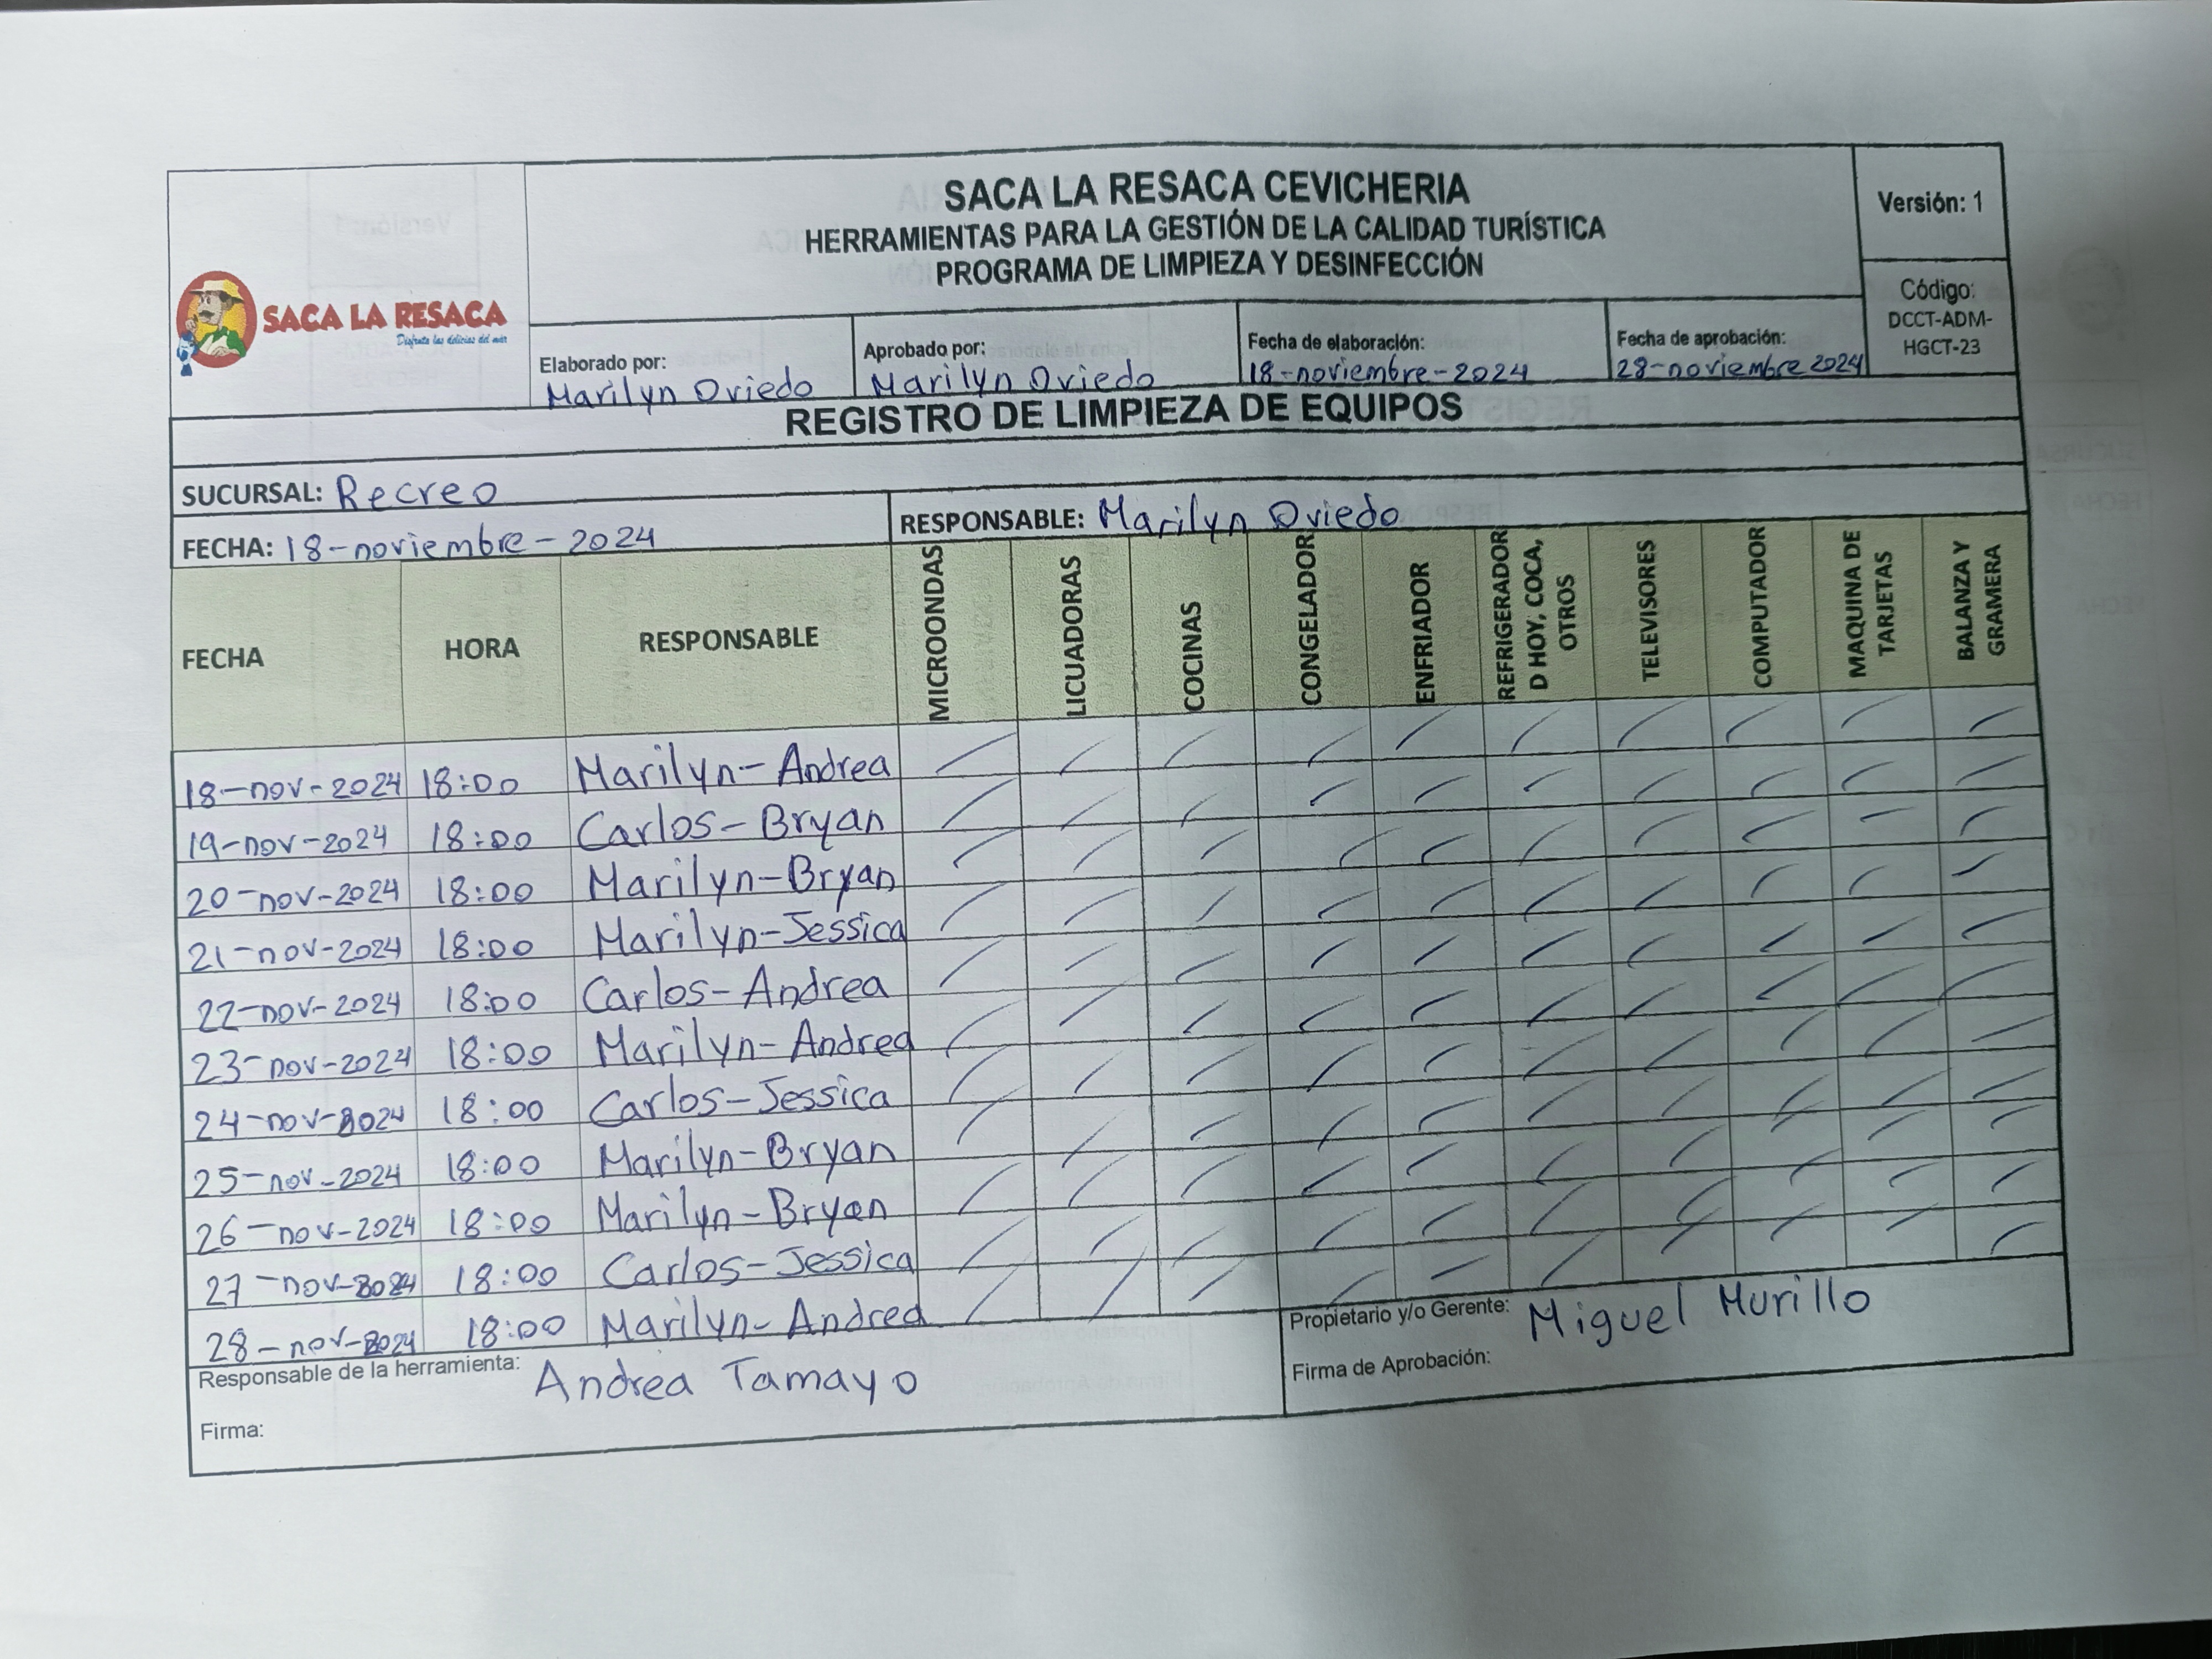 SACA LA RESACA CEVICHERIA
HERRAMIENTAS PARA LA GESTIÓN DE LA CALIDAD TURÍSTICA
PROGRAMA DE LIMPIEZA Y DESINFECCIÓN
Versión: 1
Código:
DCCT-ADM-
HGCT-23
SACA LA RESACA
Disfruta las delicias del mar
Elaborado por:
Marilyn Oviedo
Aprobado por:
Marilyn Oviedo
Fecha de elaboración:
18-noviembre-2024
Fecha de aprobación:
28-noviembre 2024
REGISTRO DE LIMPIEZA DE EQUIPOS
SUCURSAL: Recreo
FECHA: 18-noviembre-2024
RESPONSABLE: Marilyn Oviedo
FECHA HORA RESPONSABLE MICROONDAS LICUADORAS COCINAS CONGELADOR ENFRIADOR
REFRIGERADOR
D HOY, COCA,
OTROS
TELEVISORES COMPUTADOR
MAQUINA DE
TARJETAS
BALANZA Y
GRAMERA
18-nov-2024 18:00 Marilyn-Andrea
19-nov-2024 18:00 Carlos-Bryan
20-nov-2024 18:00 Marilyn-Bryan
21-nov-2024 18:00 Marilyn-Jessica
22-nov-2024 18:00 Carlos-Andrea
23-nov-2024 18:00 Marilyn-Andrea
24-nov-2024 18:00 Carlos-Jessica
25-nov-2024 18:00 Marilyn-Bryan
26-nov-2024 18:00 Marilyn-Bryan
27-nov-2024 18:00 Carlos-Jessica
28-nov-2024 18:00 Marilyn-Andrea
Responsable de la herramienta: Andrea Tamayo
Firma:
Propietario y/o Gerente: Miguel Murillo
Firma de Aprobación: